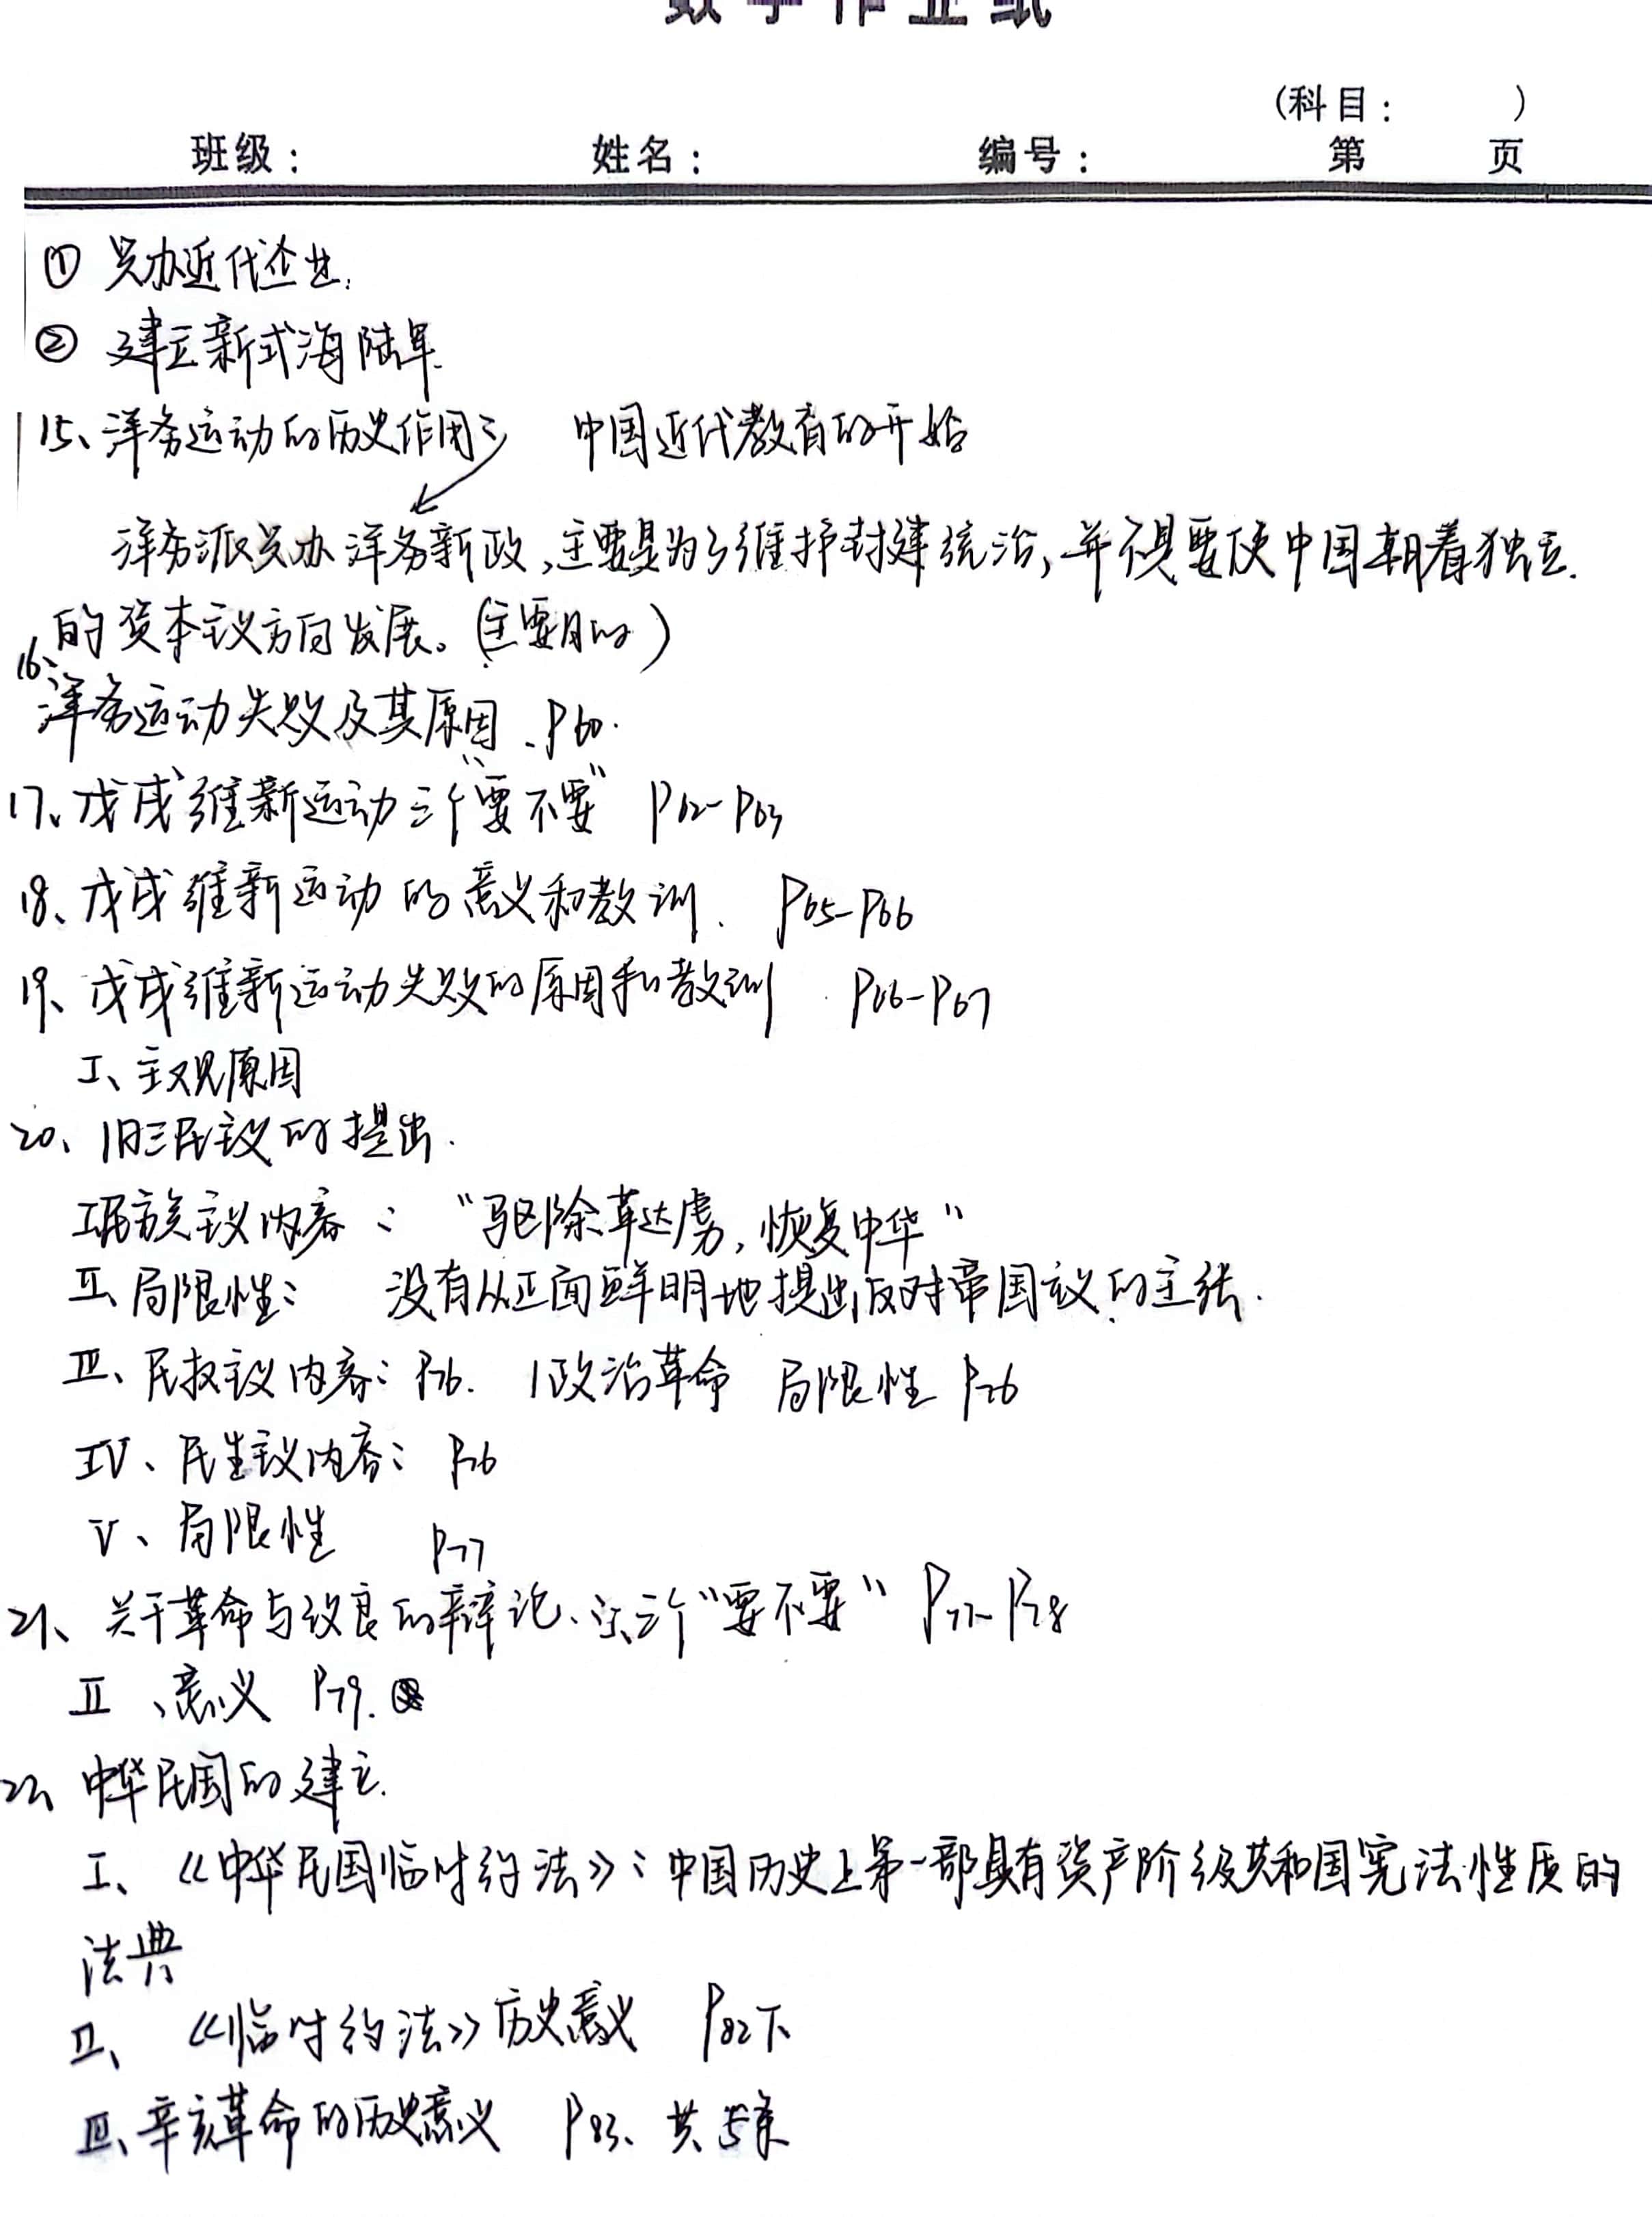 数学作业纸
(科目： )
班级： 姓名： 编号： 第 页
① 兴办近代企业.
② 建立新式海陆军.
15、洋务运动的历史作用： 中国近代教育的开始
洋务派兴办洋务新政,主要是为了维护封建统治,并不是要使中国朝着独立
的资本主义方向发展。(主要目的)
16、洋务运动失败及其原因 . P60.
17、戊戌维新运动三个“要不要” P62-P63
18、戊戌维新运动的意义和教训. P65-P66
19、戊戌维新运动失败的原因和教训 P66-P67
I、主观原因
20、旧三民主义的提出.
I、民族主义内容： “驱除鞑虏,恢复中华”
II、局限性： 没有从正面鲜明地提出反对帝国主义的主张.
III、民权主义内容： P76. 1政治革命 局限性 P76
IV、民生主义内容： P76
V、局限性 P77
21、关于革命与改良的辩论、I、三个“要不要” P77-P78
II、意义 P79.
22、中华民国的建立.
I、《中华民国临时约法》：中国历史上第一部具有资产阶级共和国宪法性质的
法典
II、《临时约法》历史意义 P82下
III、辛亥革命的历史意义 P83、共5条